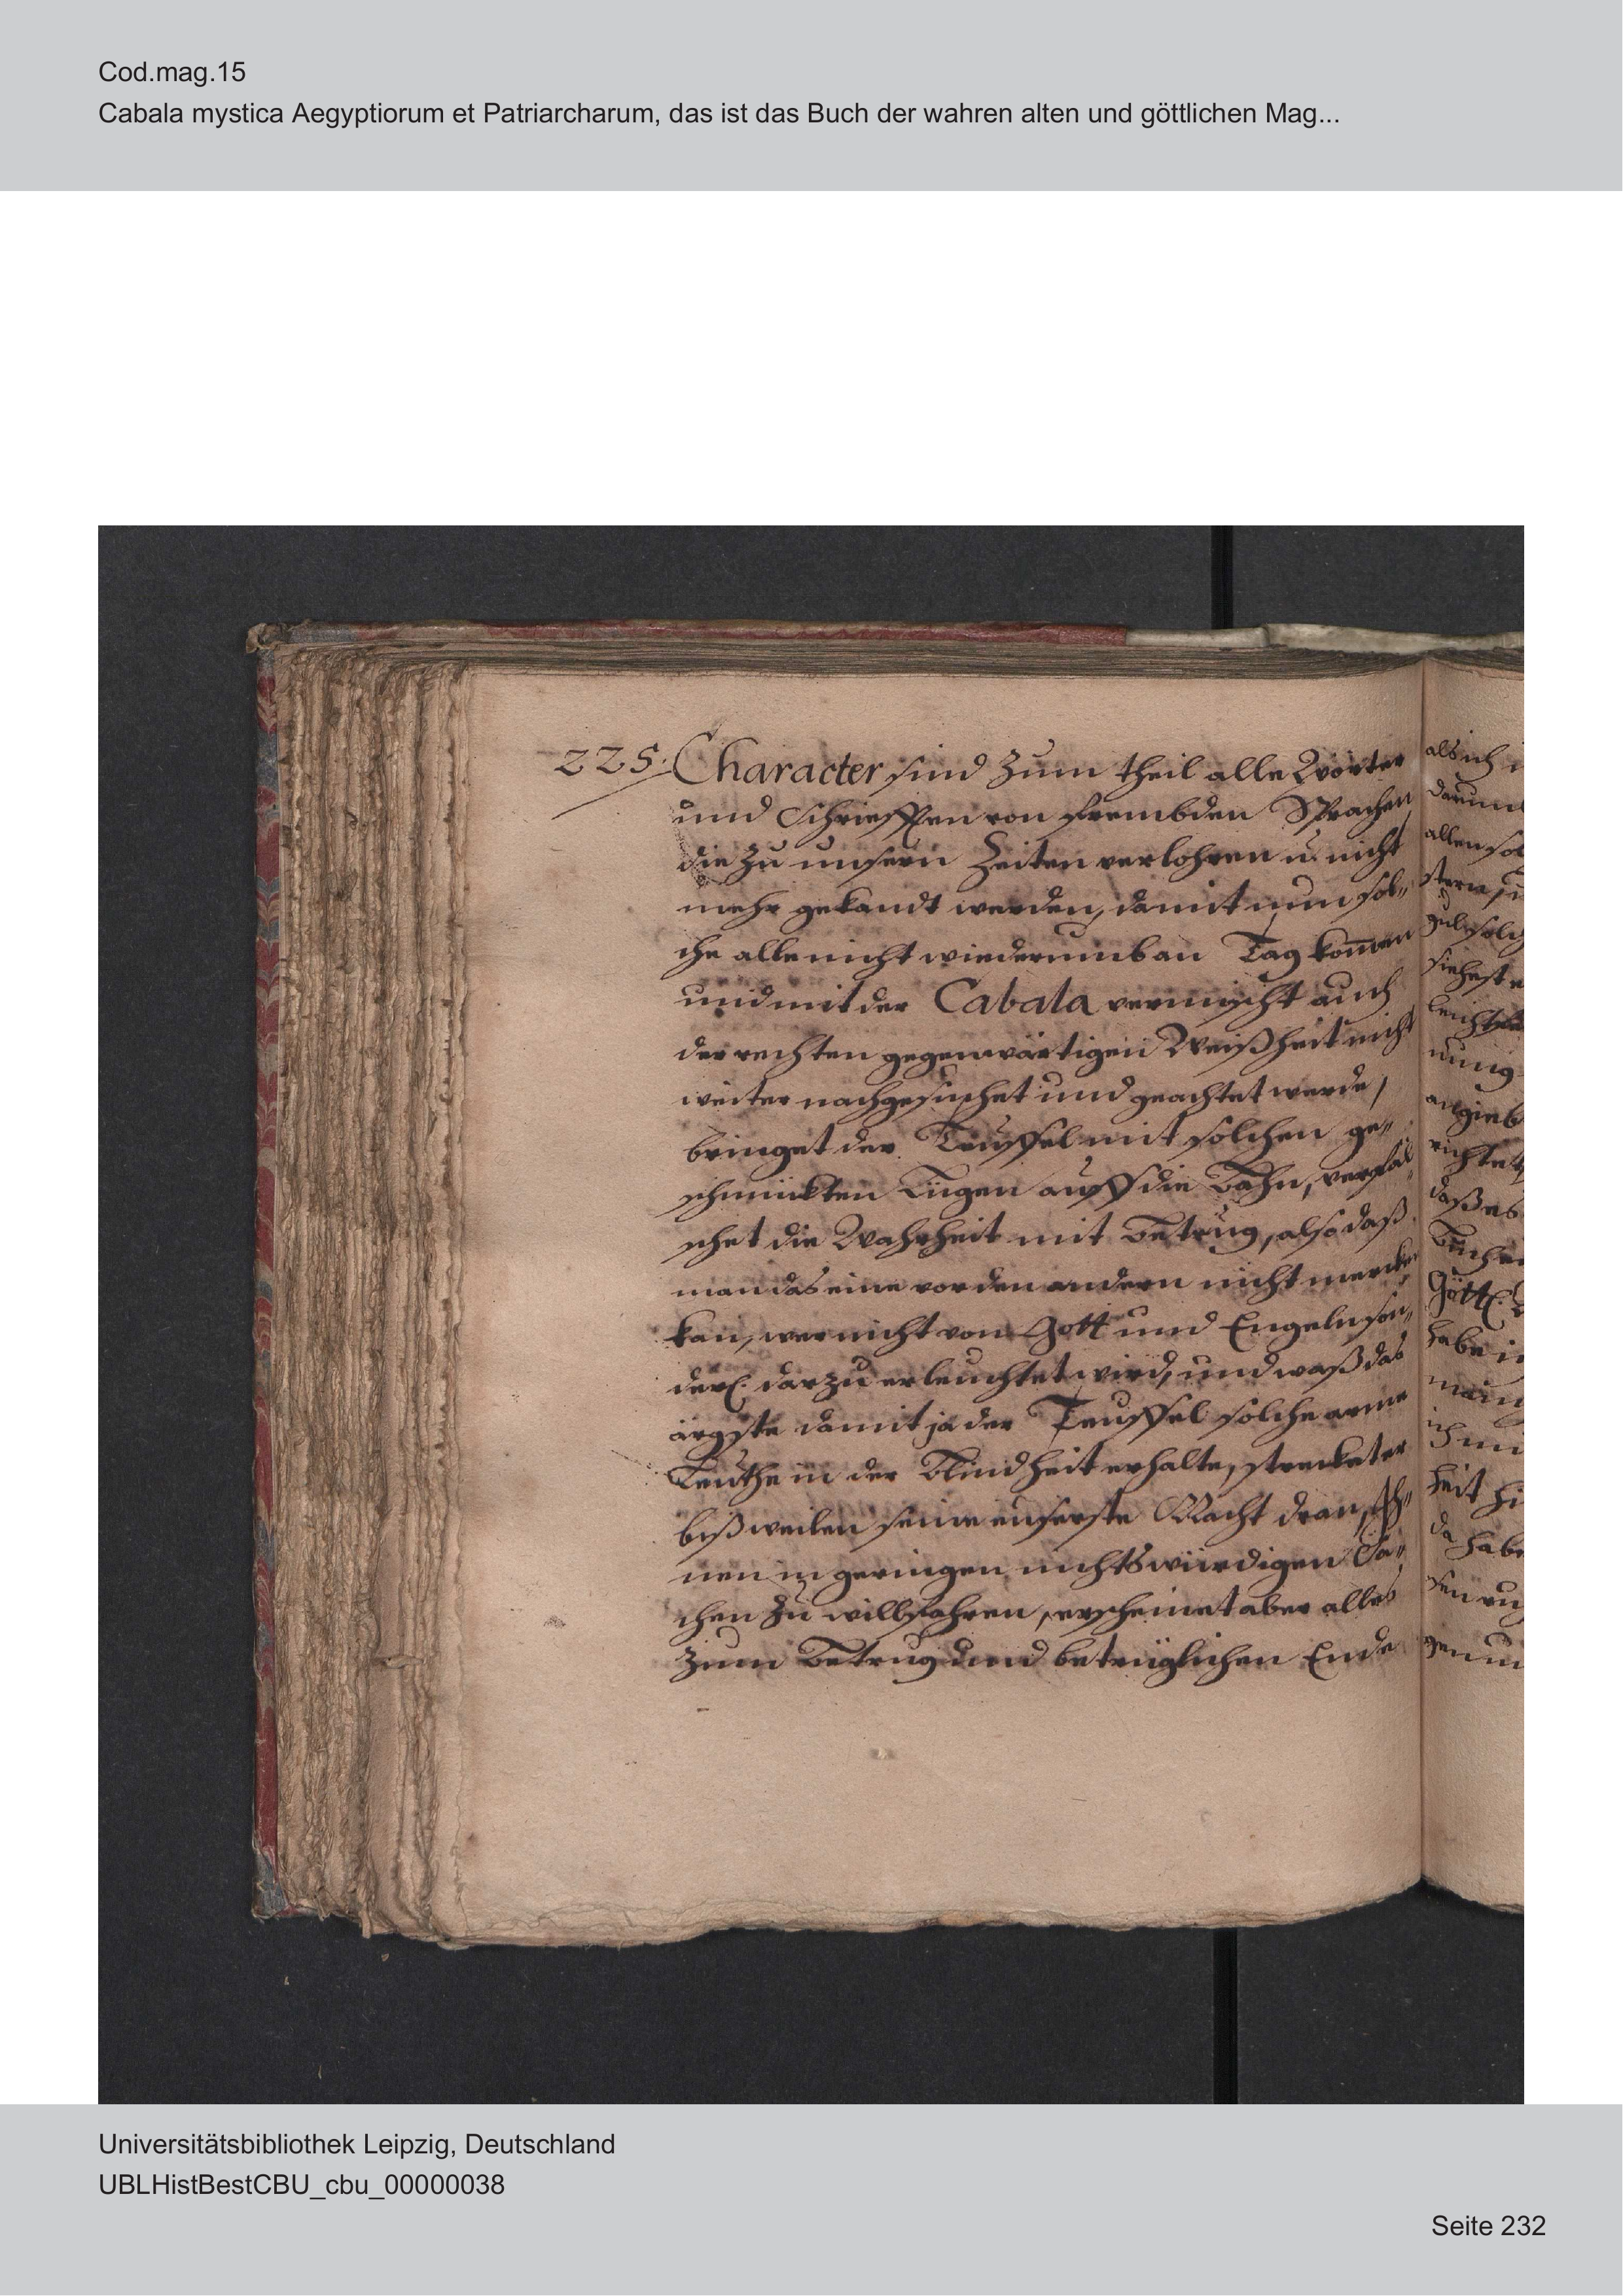 Cod.mag.15
Cabala mystica Aegyptiorum et Patriarcharum, das ist das Buch der wahren alten und göttlichen Mag...
225. Character sind zum theil alle Wörter
und Schriefften von frembden Sprachen
die zu unsern Zeiten verlohren u. nicht
mehr gekandt werden, damit nun sol„
che alle nicht wiederumb an Tag kom̄en
und mit der Cabala vermischt auch
der rechten gegenwärtigen Weißheit nicht
weiter nachgesuchet und geachtet werde,
bringet der Teuffel mit solchen ge„
schmückten Lügen auff die Bahn, verfäl„
schet die Wahrheit mit Betrug, also daß
man das eine vor den andern nicht mercken
kan, wer nicht von Gott und Engeln son„
derl. darzu erleuchtet wird, und waß das
ärgste damit ja der Teuffel solche arme
Leuthe in der Blindheit erhalte, strecket er
bißweilen seine euserste Macht dran, ih„
nen in geringen nichtswürdigen Sa„
chen zu willfahren, erscheinet aber alles
zum Betrug und betrüglichen Ende
als ich
allen
habe
heit
da habe
Universitätsbibliothek Leipzig, Deutschland
UBLHistBestCBU_cbu_00000038
Seite 232